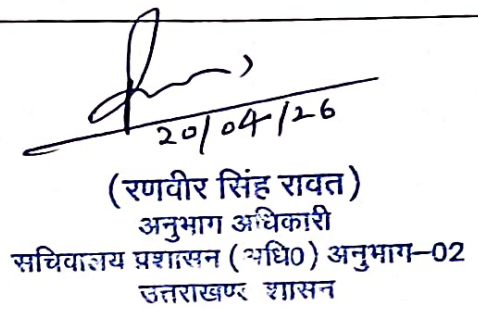 20/04/26
(रणवीर सिंह रावत)
अनुभाग अधिकारी
सचिवालय प्रशासन (अधि0) अनुभाग-02
उत्तराखण्ड शासन